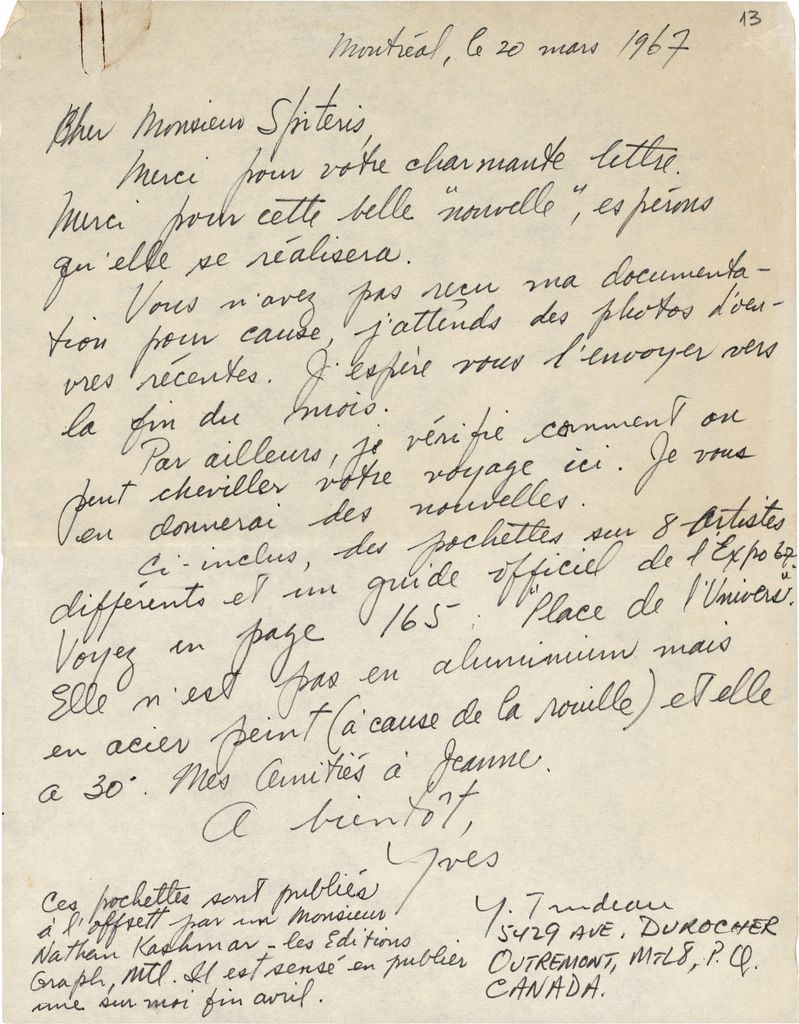 13
Montréal, le 20 mars 1967
Cher Monsieur Spiteris,
Merci pour votre charmante lettre.
Merci pour cette belle "nouvelle", espérons
qu'elle se réalisera.
Vous n'avez pas reçu ma documenta-
tion pour cause, j'attends des photos d'oeu-
vres récentes. J'espère vous l'envoyer vers
la fin du mois.
Par ailleurs, je vérifie comment on
peut cheviller votre voyage ici. Je vous
en donnerai des nouvelles.
Ci-inclus, des pochettes sur 8 Artistes
différents et un guide officiel de l'Expo 67.
Voyez en page 165 : "Place de l'Univers".
Elle n'est pas en aluminium mais
en acier peint (à cause de la rouille) et elle
a 30'. Mes Amitiés à Jeanne.
A bientôt,
Yves
Ces pochettes sont publiés
à l'offsett par un Monsieur
Nathan Kashmar - les Editions
Graph, Mtl. Il est sensé en publier
une sur moi fin avril.
Y. Trudeau
5429 AVE. DUROCHER
OUTREMONT, MTL 8, P.Q.
CANADA.